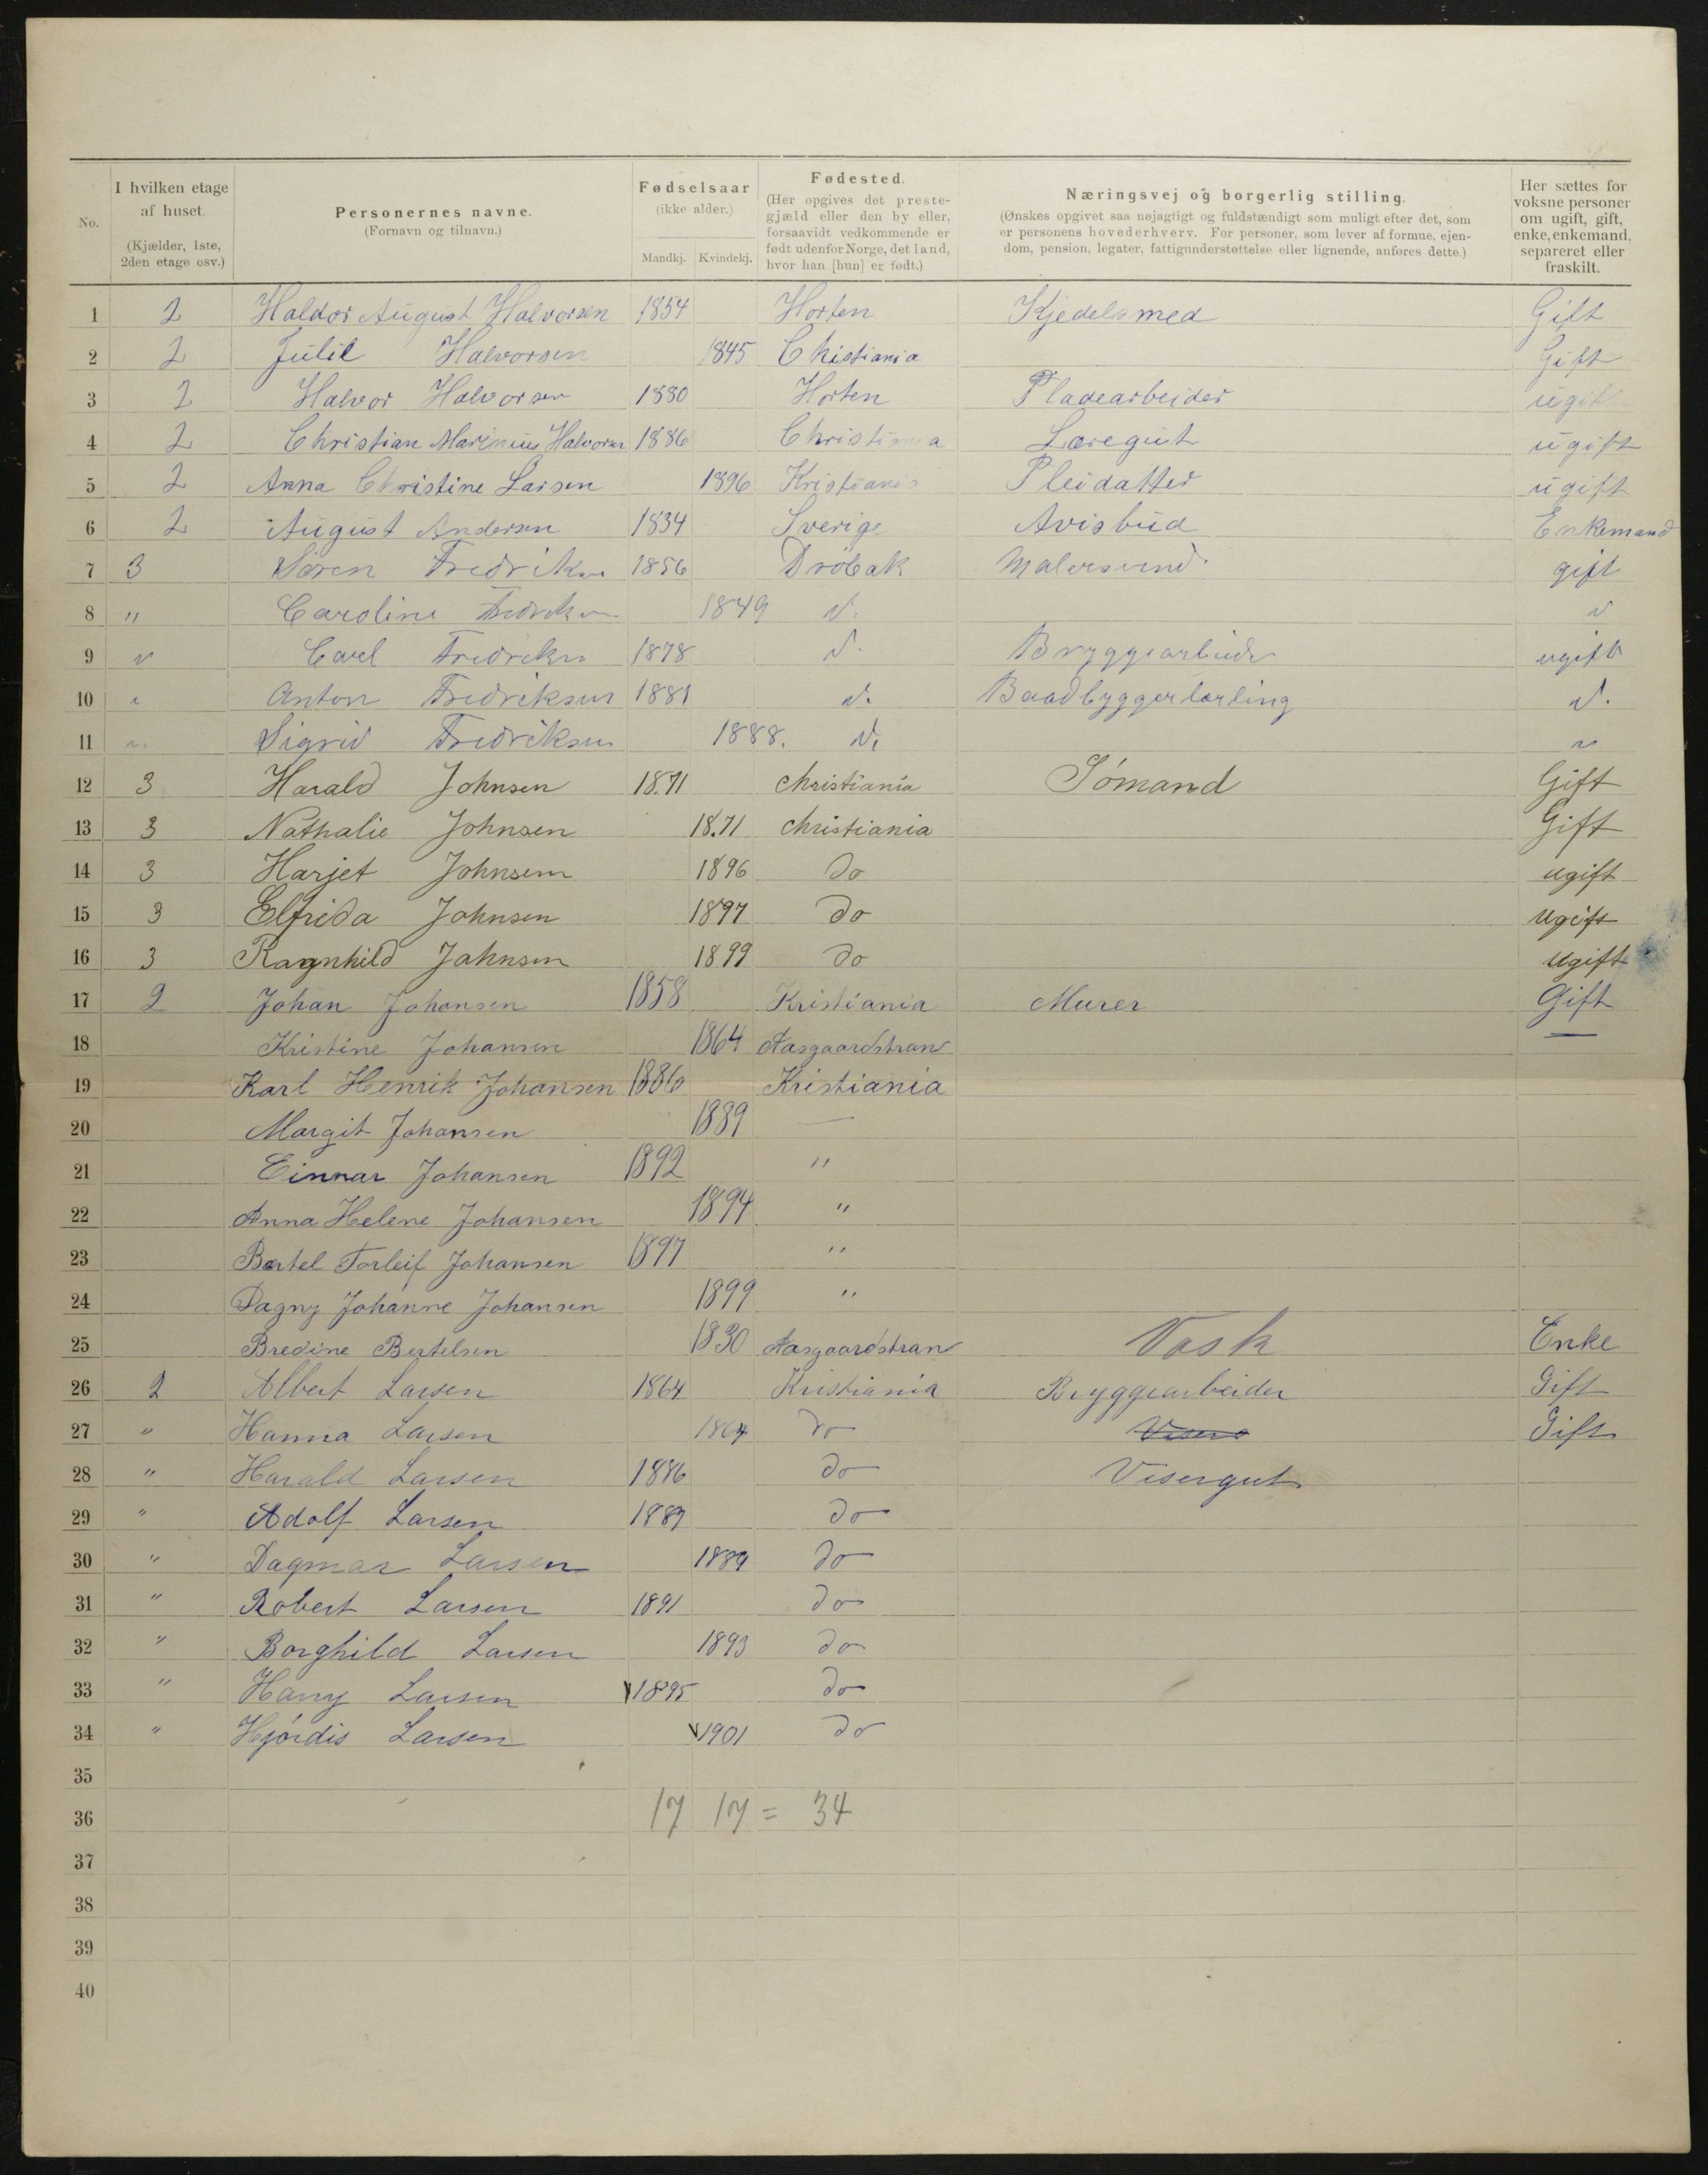 No.
I hvilken etage af huset. (Kjælder, 1ste, 2den etage osv.)
Personernes navne. (Fornavn og tilnavn.)
Fødselsaar (ikke alder.) Mandkj. Kvindekj.
Fødested. (Her opgives det prestegjæld eller den by eller, forsaavidt vedkommende er født udenfor Norge, det land, hvor han [hun] er født.)
Næringsvej og borgerlig stilling. (Ønskes opgivet saa nøjagtigt og fuldstændigt som muligt efter det, som er personens hovederhverv. For personer, som lever af formue, ejendom, pension, legater, fattigunderstøttelse eller lignende, anføres dette.)
Her sættes for voksne personer om ugift, gift, enke, enkemand, separeret eller fraskilt.
1 2 Haldor August Halvorsen 1854 Horten Kjedelsmed Gift
2 2 Julie Halvorsen 1845 Christiania Gift
3 2 Halvor Halvorsen 1880 Horten Pladearbeider ugift
4 2 Christian Marinius Halvorsen 1886 Christiania Læregut ugift
5 2 Anna Christine Larsen 1896 Kristiania Pleidatter ugift
6 2 August Andersen 1834 Sverige Avisbud Enkemand
7 3 Søren Fredriksen 1856 Drøbak Malersvend. gift
8 " Caroline Fredriksen 1849 ". "
9 " Carl Fredriksen 1878 ". Bryggearbeider ugift
10 " Anton Fredriksen 1881 ". Baadbyggerlærling ".
11 " Sigrid Fredriksen 1888. ". "
12 3 Harald Johnsen 18.71 Christiania Sömand Gift
13 3 Nathalie Johnsen 18.71 Christiania Gift
14 3 Harjet Johnsen 1896 do ugift
15 3 Elfrida Johnsen 1897 do ugift
16 3 Ragnhild Johnsen 1899 do ugift
17 2 Johan Johansen 1858 Kristiania Murer Gift
18 Kristine Johansen 1864 Aasgaardstran —
19 Karl Henrik Johansen 1886 Kristiania
20 Margit Johansen 1889 —
21 Einnar Johansen 1892 "
22 Anna Helene Johansen 1894 "
23 Bertel Torleif Johansen 1897 "
24 Dagny Johanne Johansen 1899 "
25 Bredine Bertelsen 1830 Aasgaardstran Vask Enke
26 2 Albert Larsen 1864 Kristiania Bryggearbeider Gift
27 " Hanna Larsen 1864 do Viser Gift
28 " Harald Larsen 1886 do Visergut
29 " Adolf Larsen 1887 do
30 " Dagmar Larsen 1889 do
31 " Robert Larsen 1891 do
32 " Borghild Larsen 1893 do
33 " Harry Larsen 1895 do
34 " Hjördis Larsen 1901 do
35
36 17 17 = 34
37
38
39
40